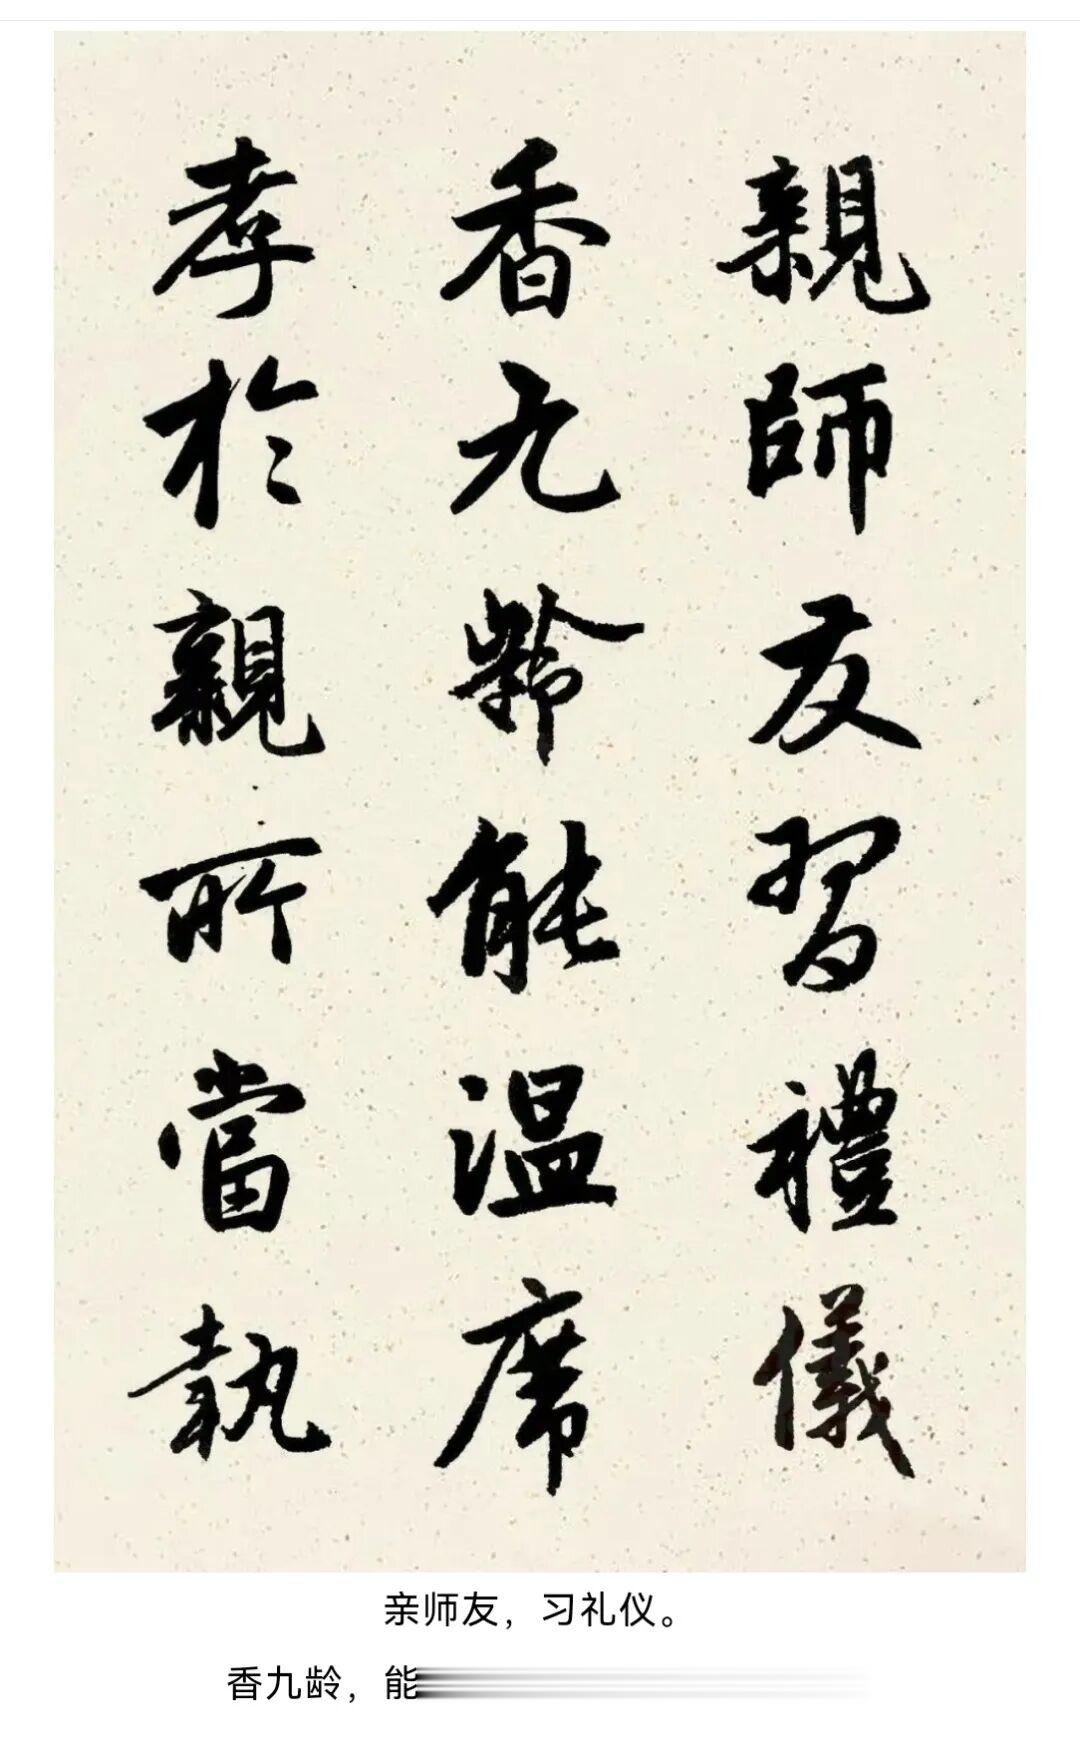 親師友習禮儀
香九齡能温席
孝於親所當執
亲师友，习礼仪。
香九龄，能